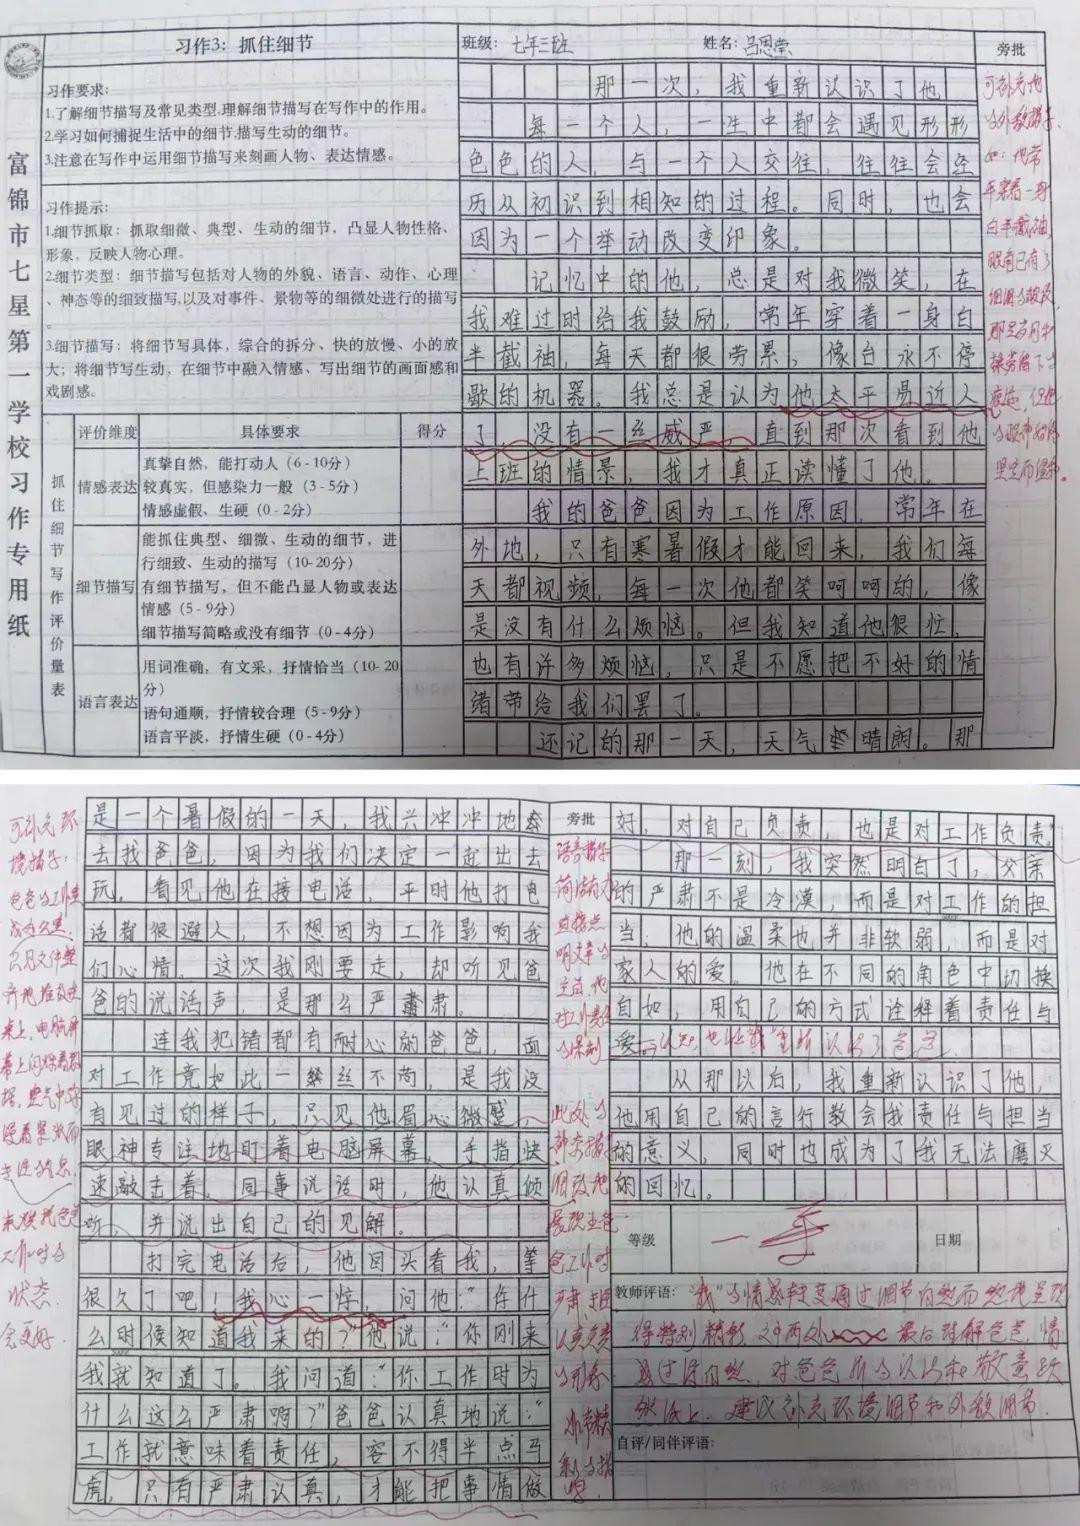 富锦市七星第一学校习作专用纸
习作3：抓住细节
班级：七年三班
姓名：吕恩莹
旁批
习作要求：
1.了解细节描写及常见类型,理解细节描写在写作中的作用。
2.学习如何捕捉生活中的细节,描写生动的细节。
3.注意在写作中运用细节描写来刻画人物、表达情感。
习作提示：
1.细节抓取：抓取细微、典型、生动的细节，凸显人物性格、
形象，反映人物心理。
2.细节类型：细节描写包括对人物的外貌、语言、动作、心理
、神态等的细致描写,以及对事件、景物等的细微处进行的描写
。
3.细节描写：将细节写具体，综合的拆分、快的放慢、小的放
大；将细节写生动，在细节中融入情感、写出细节的画面感和
戏剧感。
抓住细节写作评价量表
评价维度
具体要求
得分
情感表达
真挚自然，能打动人（6-10分）
较真实，但感染力一般（3-5分）
情感虚假、生硬（0-2分）
细节描写
能抓住典型、细微、生动的细节，进
行细致、生动的描写（10-20分）
有细节描写，但不能凸显人物或表达
情感（5-9分）
细节描写简略或没有细节（0-4分）
语言表达
用词准确，有文采，抒情恰当（10-20
分）
语句通顺，抒情较合理（5-9分）
语言平淡，抒情生硬（0-4分）
那一次，我重新认识了他
每一个人，一生中都会遇见形形
色色的人，与一个人交往，往往会经
历从初识到相知的过程。同时，也会
因为一个举动改变印象。
记忆中的他，总是对我微笑，在
我难过时给我鼓励，常年穿着一身白
半截袖，每天都很劳累，像台永不停
歇的机器。我总是认为他太平易近人
了，没有一丝威严，直到那次看到他
上班的情景，我才真正读懂了他。
我的爸爸因为工作原因，常年在
外地，只有寒暑假才能回来，我们每
天都视频，每一次他都笑呵呵的，像
是没有什么烦恼。但我知道他很忙，
也有许多烦恼，只是不愿把不好的情
绪带给我们罢了。
还记的那一天，天气晴朗。那
可补充他
的外貌描写
如：他常
年穿着一身
白半截袖，
眼角已有了
细细的皱纹，
那是岁月和
操劳留下的
痕迹，但他
的眼神始终
坚定而温和。
是一个暑假的一天，我兴冲冲地
去找爸爸，因为我们决定一起出去
玩。看见他在接电话，平时他打电
话都很避人，不想因为工作影响我
们心情。这次我刚要走，却听见爸
爸的说话声，是那么严肃。
连我犯错都有耐心的爸爸，面
对工作竟如此一丝不苟，是我没
有见过的样子，只见他眉心微蹙，
眼神专注地盯着电脑屏幕，手指快
速敲击着。同事说话时，他认真倾
听，并说出自己的见解。
打完电话后，他回头看着我，等
很久了吧！我心一惊，问他："你什
么时候知道我来的？"他说："你刚来
我就知道了。我问道："你工作时为
什么这么严肃啊？"爸爸认真地说："
工作就意味着责任，容不得半点马
虎，只有严肃认真，才能把事情做
可补充环
境描写：
状态，
会更好
旁批
好，对自己负责，也是对工作负责。"
那一刻，我突然明白了，父亲
的严肃不是冷漠，而是对工作的担
当；他的温柔也并非软弱，而是对
家人的爱。他在不同的角色中切换
自如，用自己的方式诠释着责任与
爱。
从那以后，我重新认识了他，
他用自己的言行教会我责任与担当
的意义，同时也成为了我无法磨灭
的回忆。
等级
日期
教师评语："我"的情感转变通过细节自然而然地呈现
得特别精彩，最后理解爸爸，情
感过渡自然，对爸爸的认识和敬意跃
然纸上，建议补充环境细节和外貌细节。
自评/同伴评语：